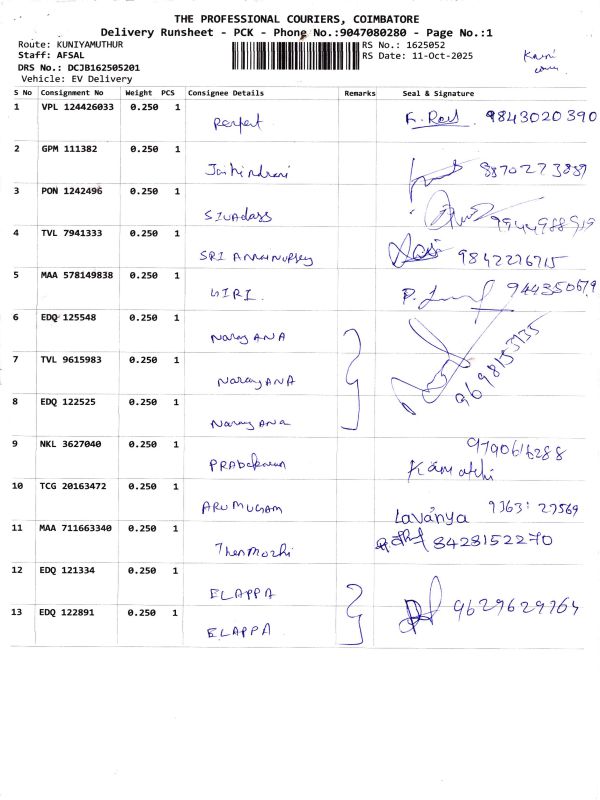 THE PROFESSIONAL COURIERS, COIMBATORE
Delivery Runsheet - PCK - Phone No.:9047080280 - Page No.:1
Route: KUNIYAMUTHUR RS No.: 1625052
Staff: AFSAL RS Date: 11-Oct-2025
DRS No.: DCJB162505201
Vehicle: EV Delivery
S No Consignment No Weight PCS Consignee Details Remarks Seal & Signature
1 VPL 124426033 0.250 1 Perfect 9843020390
2 GPM 111382 0.250 1 8870273889
3 PON 1242496 0.250 1 SIVAdass 9944988919
4 TVL 7941333 0.250 1 SRI 9842226715
5 MAA 578149838 0.250 1 GIRI. 944350679
6 EDQ 125548 0.250 1 NarayANA
7 TVL 9615983 0.250 1 NarayANA 9698153135
8 EDQ 122525 0.250 1 NarayANa
9 NKL 3627040 0.250 1 PRAbakaran 9790616288
Kamatchi
10 TCG 20163472 0.250 1 ARUMUGAM Lavanya
11 MAA 711663340 0.250 1 Thenmozhi 8428152270
12 EDQ 121334 0.250 1 ELAPPA
13 EDQ 122891 0.250 1 ELAPPA 9629629764